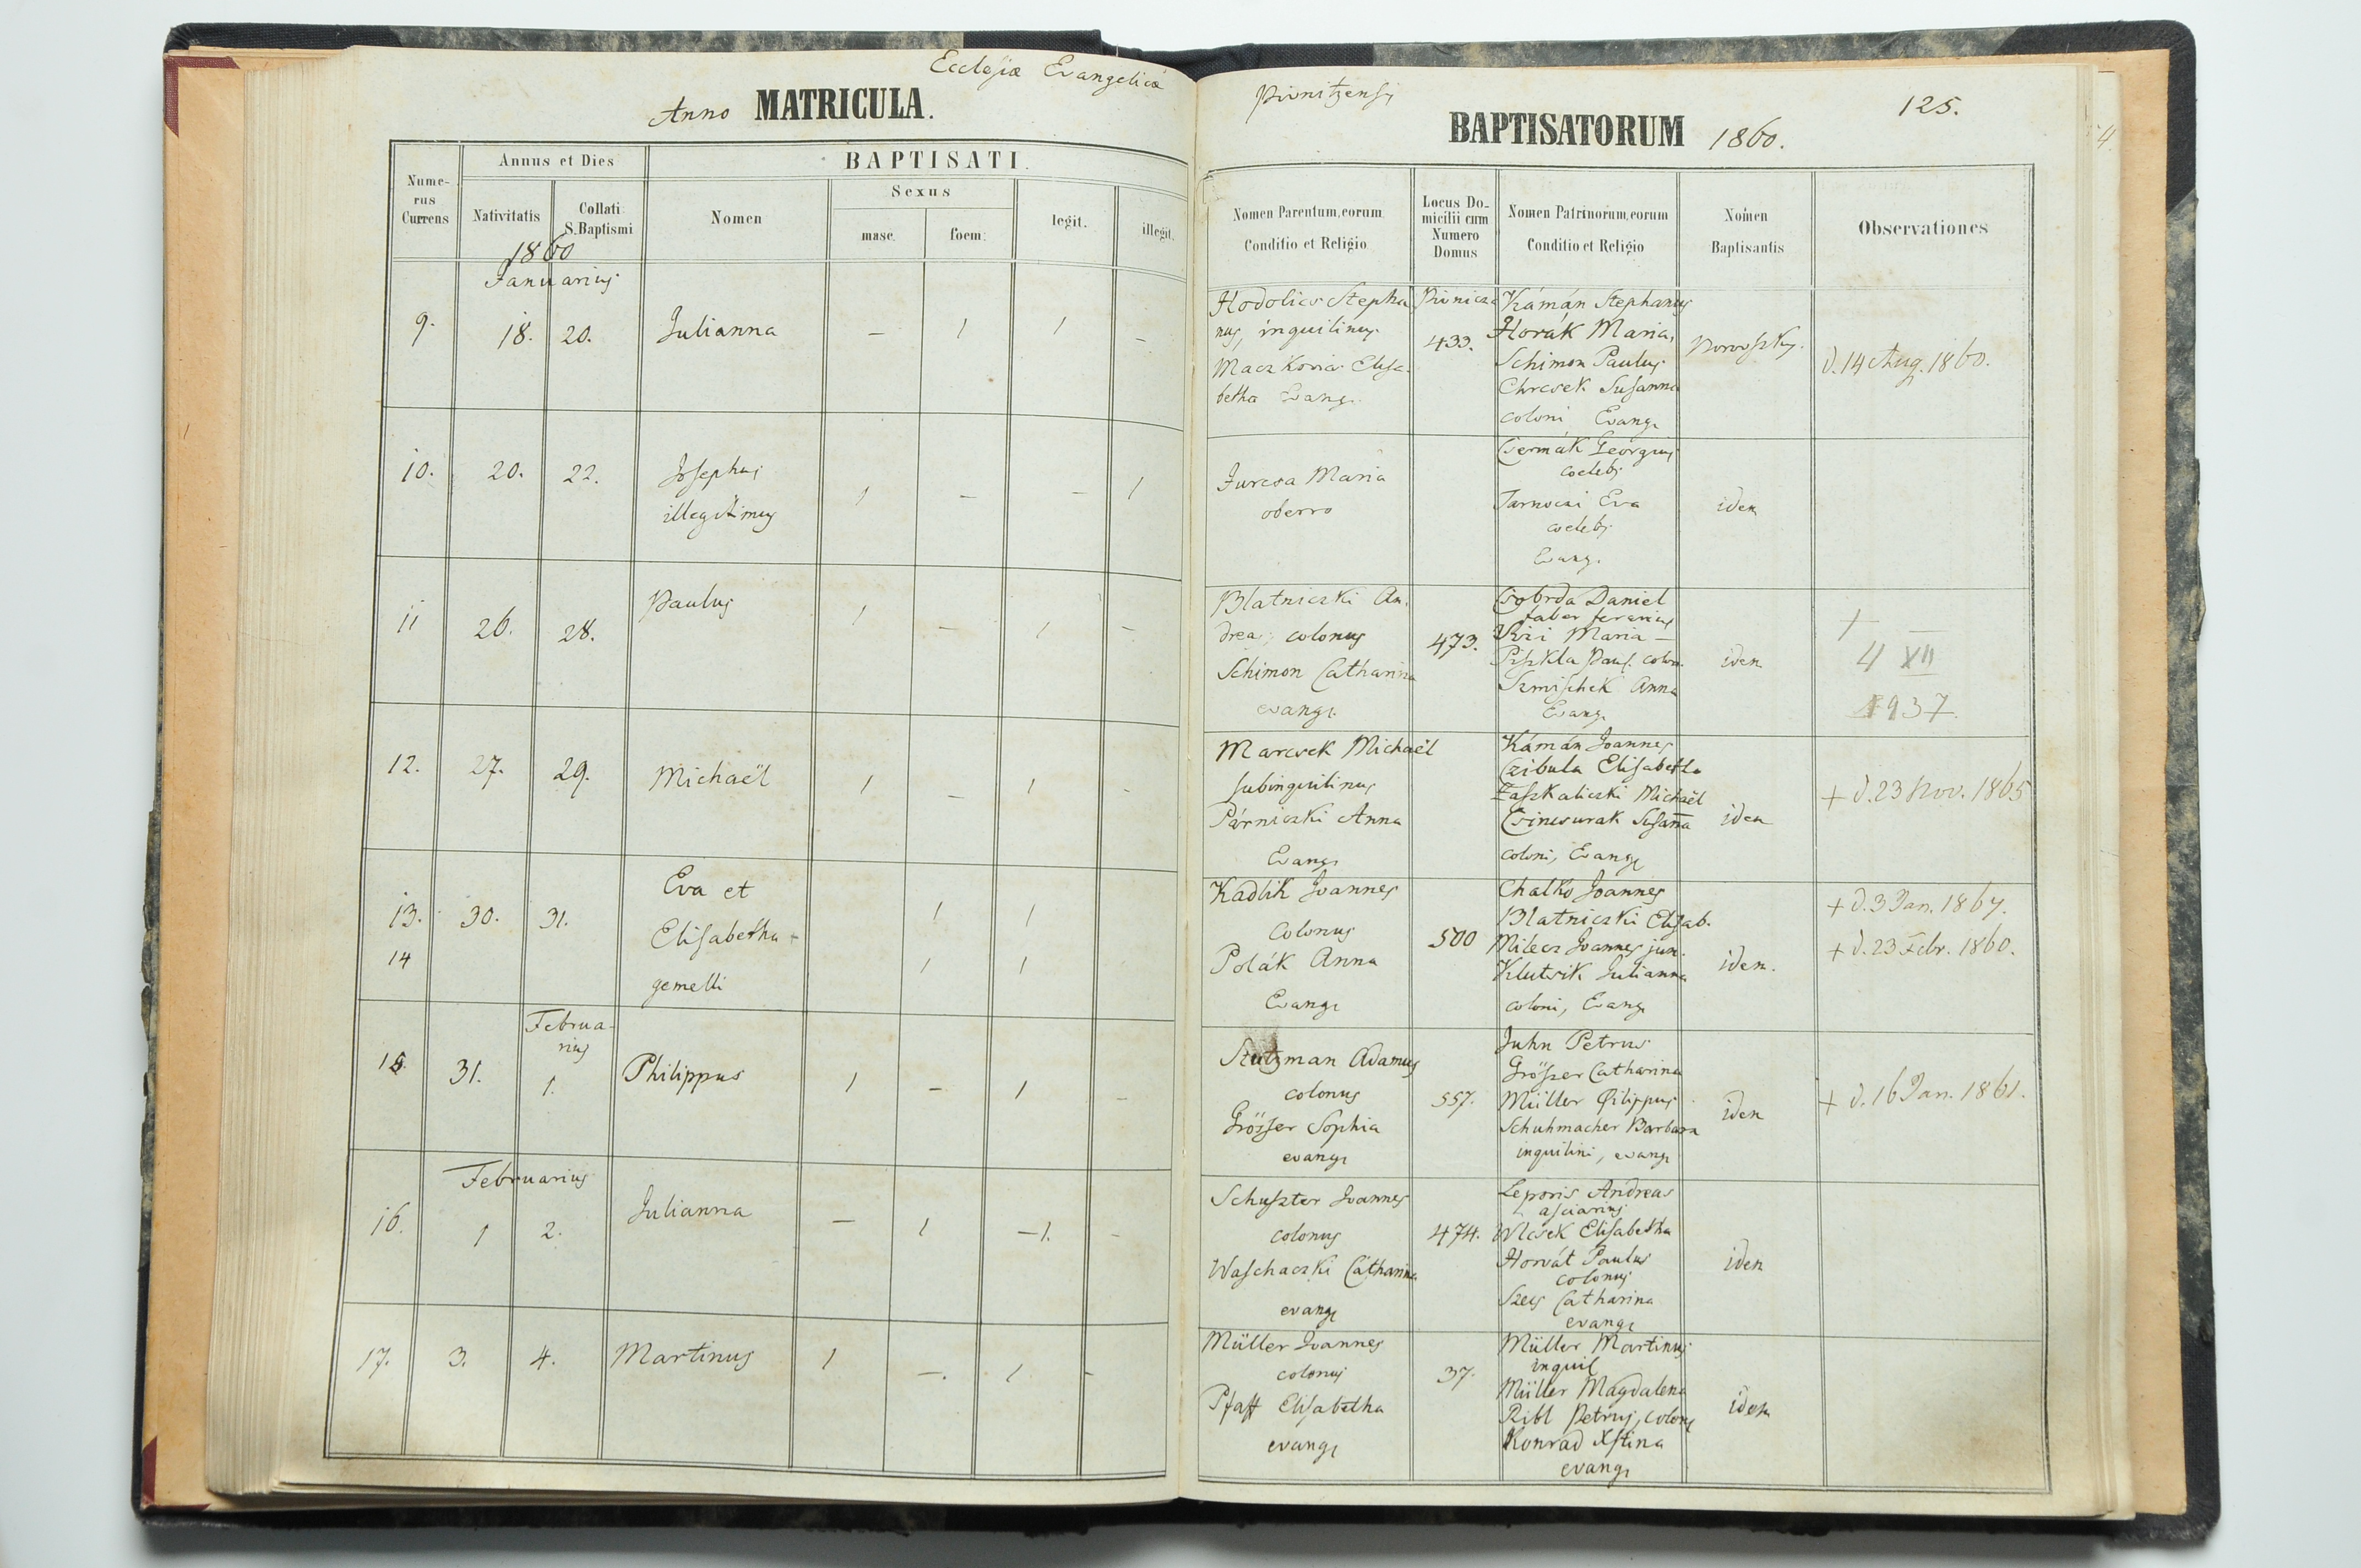 Ecclesiæ Evangelicæ
Anno MATRICULA.
Nume-
rus
Currens
Annus et Dies
Nativitatis
Collati
S. Baptismi
BAPTISATI.
Nomen
Sexus
masc.
foem:
legit.
illegit.
1860
Januarius
9. 18. 20. Julianna — 1 1 —
10. 20. 22. Josephus
illegitimus 1 — — 1
11 26. 28. Paulus 1 — 1 —
12. 27. 29. Michaël 1 — 1 -
13. 30. 31. Eva et 1 1
Elisabetha +
14 1 1
gemelli
Februa-
rius
15. 31. 1. Philippus 1 — 1 —
Februarius
16. 1 2. Julianna — 1 —1. -
17. 3. 4. Martinus 1 —. 1 -
Pivnitzensis
125.
BAPTISATORUM 1860.
Nomen Parentum, eorum
Conditio et Religio
Locus Do-
micilii cum
Numero
Domus
Nomen Patrinorum, eorum
Conditio et Religio
Nomen
Baptisantis
Observationes
Hodolics Stepha
nus, inquilinus
Maczkovics Elisa-
betha Evang.
Pivnicza
433.
Kámán Stephanus
Horák Maria,
Schimon Paulus
Chrcsek Susanna
coloni Evang.
d. 14 Aug. 1860.
Jurcsa Maria
oberro
Csermák Georgius
coelebs
Tarnoczi Eva
coelebs
Evang.
idem
Blatniczki An-
dreas, colonus
Schimon Catharina
evang.
473.
Csobrda Daniel
faber ferrarius
Maria —
Piszkla Paul. colon.
Szmischek Anna
Evang.
idem
+
4 XII
1937
Marcsek Michaël
subinquilinus
Párniczki Anna
Evang.
Kámán Joannes
Czibula Elisabetha
Faszkaliczki Michaël
Csincsurak Susanna
coloni, Evang.
idem
+ d. 23 Nov. 1865
Kadlik Joannes
Colonus
Polák Anna
Evang.
500
Chalko Joannes
Blatniczki Elisab.
Milecz Joannes jun.
Klutsik Julianna
coloni, Evang.
idem.
+ d. 3 Jan. 1867.
+ d. 23 Febr. 1860.
Stutzman Adamus
colonus
Grösser Sophia
evang.
557.
Juhn Petrus
Grösser Catharina
Müller Filippus
Schuhmacher Barbara
inquilini, evang.
idem
+ d. 16 Jan. 1861.
Schuszter Joannes
colonus
Waschaczki Catharina
evang.
474.
Leporis Andreas
asciarius
Wlcsek Elisabetha
Horvát Paulus
colonus
Catharina
evang.
idem
Müller Joannes
colonus
Pfaff Elisabetha
evang.
37.
Müller Martinus
inquil
Müller Magdalena
Ribl Petrus, colonus
Konrad Xstina
evang.
idem